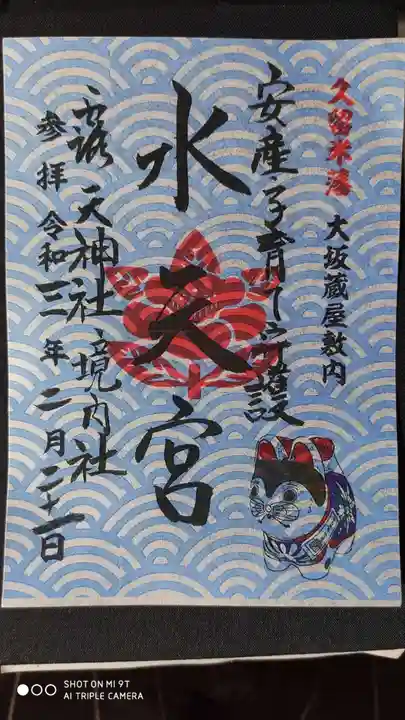 久留米藩
大坂蔵屋敷内
安産・子育て守護
水天宮
露天神社境内社
参拝 令和三年二月二十一日
SHOT ON MI 9T
AI TRIPLE CAMERA